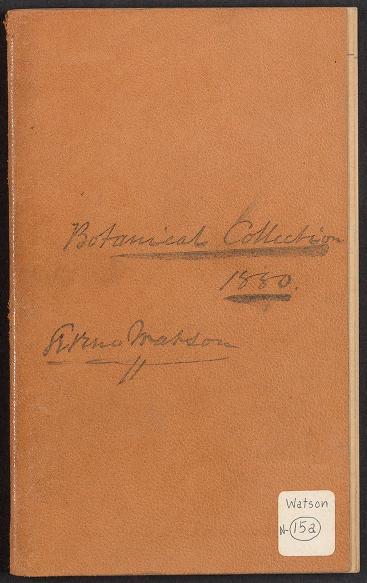 Botanical Collection
1880.
Watson
Watson
N-15a